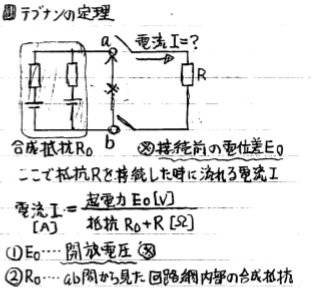 図 テブナンの定理
a 電流I=?
R
b
合成抵抗R₀ ※接続前の電位差E₀
ここで抵抗Rを接続した時に流れる電流I
電流I[A] = 起電力E₀[V] / 抵抗R₀+R[Ω]
①E₀…開放電圧※
②R₀…ab間から見た回路網内部の合成抵抗